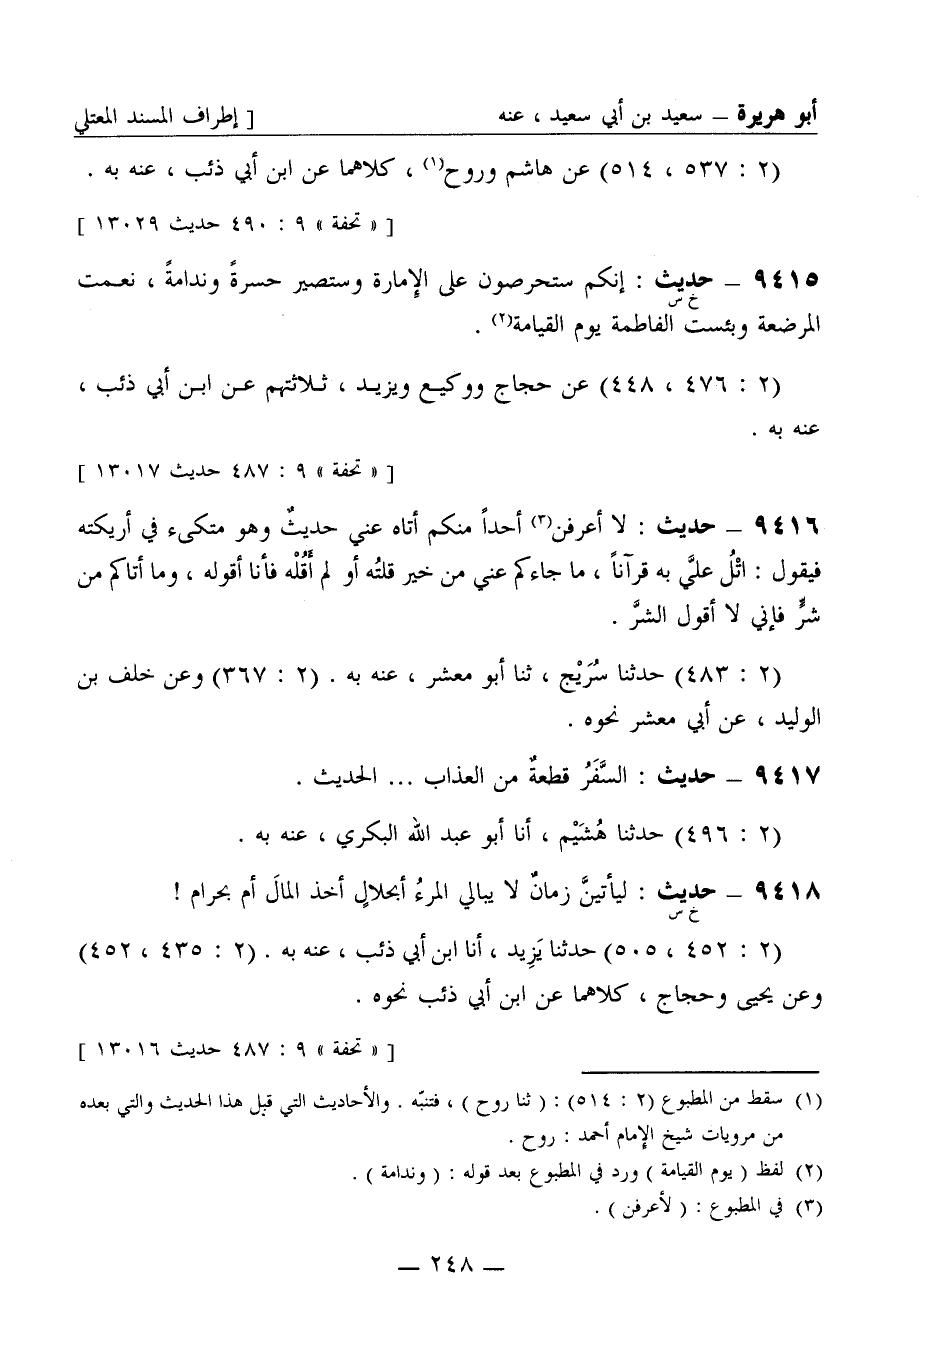 أبو هريرة – سعيد بن أبي سعيد ، عنه [ إطراف المسند المعتلي
(٢ : ٥٣٧ ، ٥١٤) عن هاشم وروح(١) ، كلاهما عن ابن أبي ذئب ، عنه به .
[ « تحفة » ٩ : ٤٩٠ حديث ١٣٠٢٩ ]
٩٤١٥ – حديث : إنكم ستحرصون على الإمارة وستصير حسرةً وندامةً ، نعمت
خ س
المرضعة وبئست الفاطمة يوم القيامة(٢) .
(٢ : ٤٧٦ ، ٤٤٨) عن حجاج ووكيع ويزيد ، ثلاثتهم عن ابن أبي ذئب ،
عنه به .
[ « تحفة » ٩ : ٤٨٧ حديث ١٣٠١٧ ]
٩٤١٦ – حديث : لا أعرفن(٣) أحداً منكم أتاه عني حديثٌ وهو متكىء في أريكته
فيقول : اتْلُ عليَّ به قرآناً ، ما جاءكم عني من خير قلتُه أو لم أَقُلْه فأنا أقوله ، وما أتاكم من
شرٍّ فإني لا أقول الشرَّ .
(٢ : ٤٨٣) حدثنا سُرَيْج ، ثنا أبو معشر ، عنه به . (٢ : ٣٦٧) وعن خلف بن
الوليد ، عن أبي معشر نحوه .
٩٤١٧ – حديث : السَّفَرُ قطعةٌ من العذاب ... الحديث .
(٢ : ٤٩٦) حدثنا هُشَيْم ، أنا أبو عبد الله البكري ، عنه به .
٩٤١٨ – حديث : ليأتينَّ زمانٌ لا يبالي المرءُ أبحلالٍ أخذ المالَ أم بحرام !
خ س
(٢ : ٤٥٢ ، ٥٠٥) حدثنا يَزِيد ، أنا ابن أبي ذئب ، عنه به . (٢ : ٤٣٥ ، ٤٥٢)
وعن يحيى وحجاج ، كلاهما عن ابن أبي ذئب نحوه .
[ « تحفة » ٩ : ٤٨٧ حديث ١٣٠١٦ ]
(١) سقط من المطبوع (٢ : ٥١٤) : ( ثنا روح ) ، فتنبّه . والأحاديث التي قبل هذا الحديث والتي بعده
من مرويات شيخ الإمام أحمد : روح .
(٢) لفظ ( يوم القيامة ) ورد في المطبوع بعد قوله : ( وندامة ) .
(٣) في المطبوع : ( لأعرفن ) .
— ٢٤٨ —